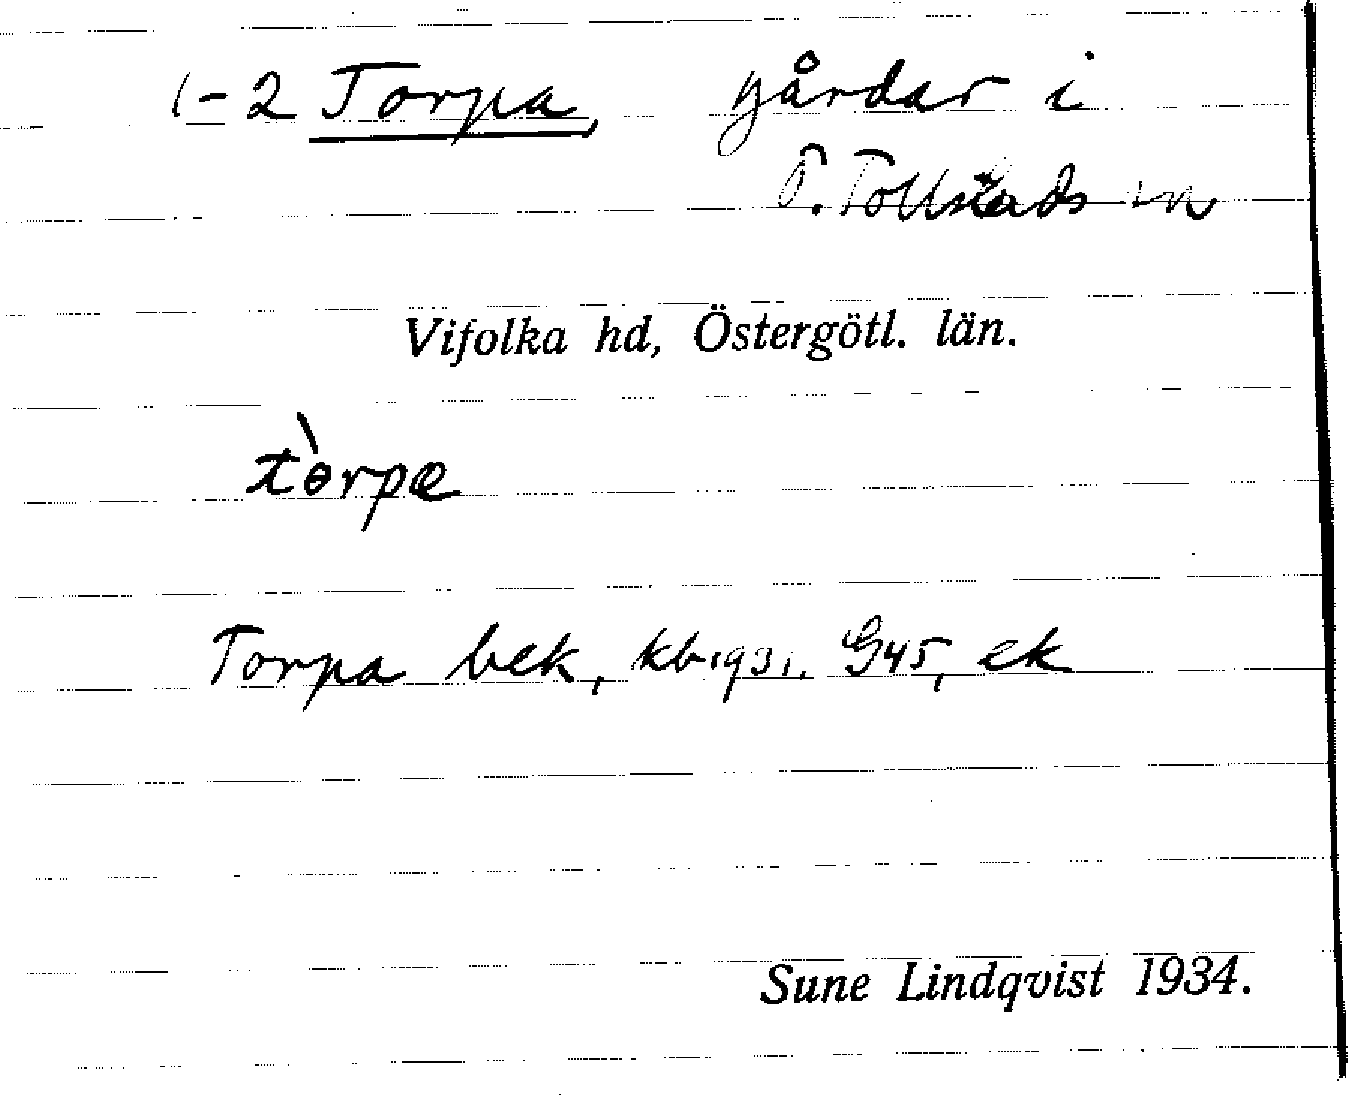 1-2 Torpa, gårdar i
V. Tollstads sn
Vifolka hd, Östergötl. län.
tòrpe
Torpa bek, kb 1931, G45, ek
Sune Lindqvist 1934.